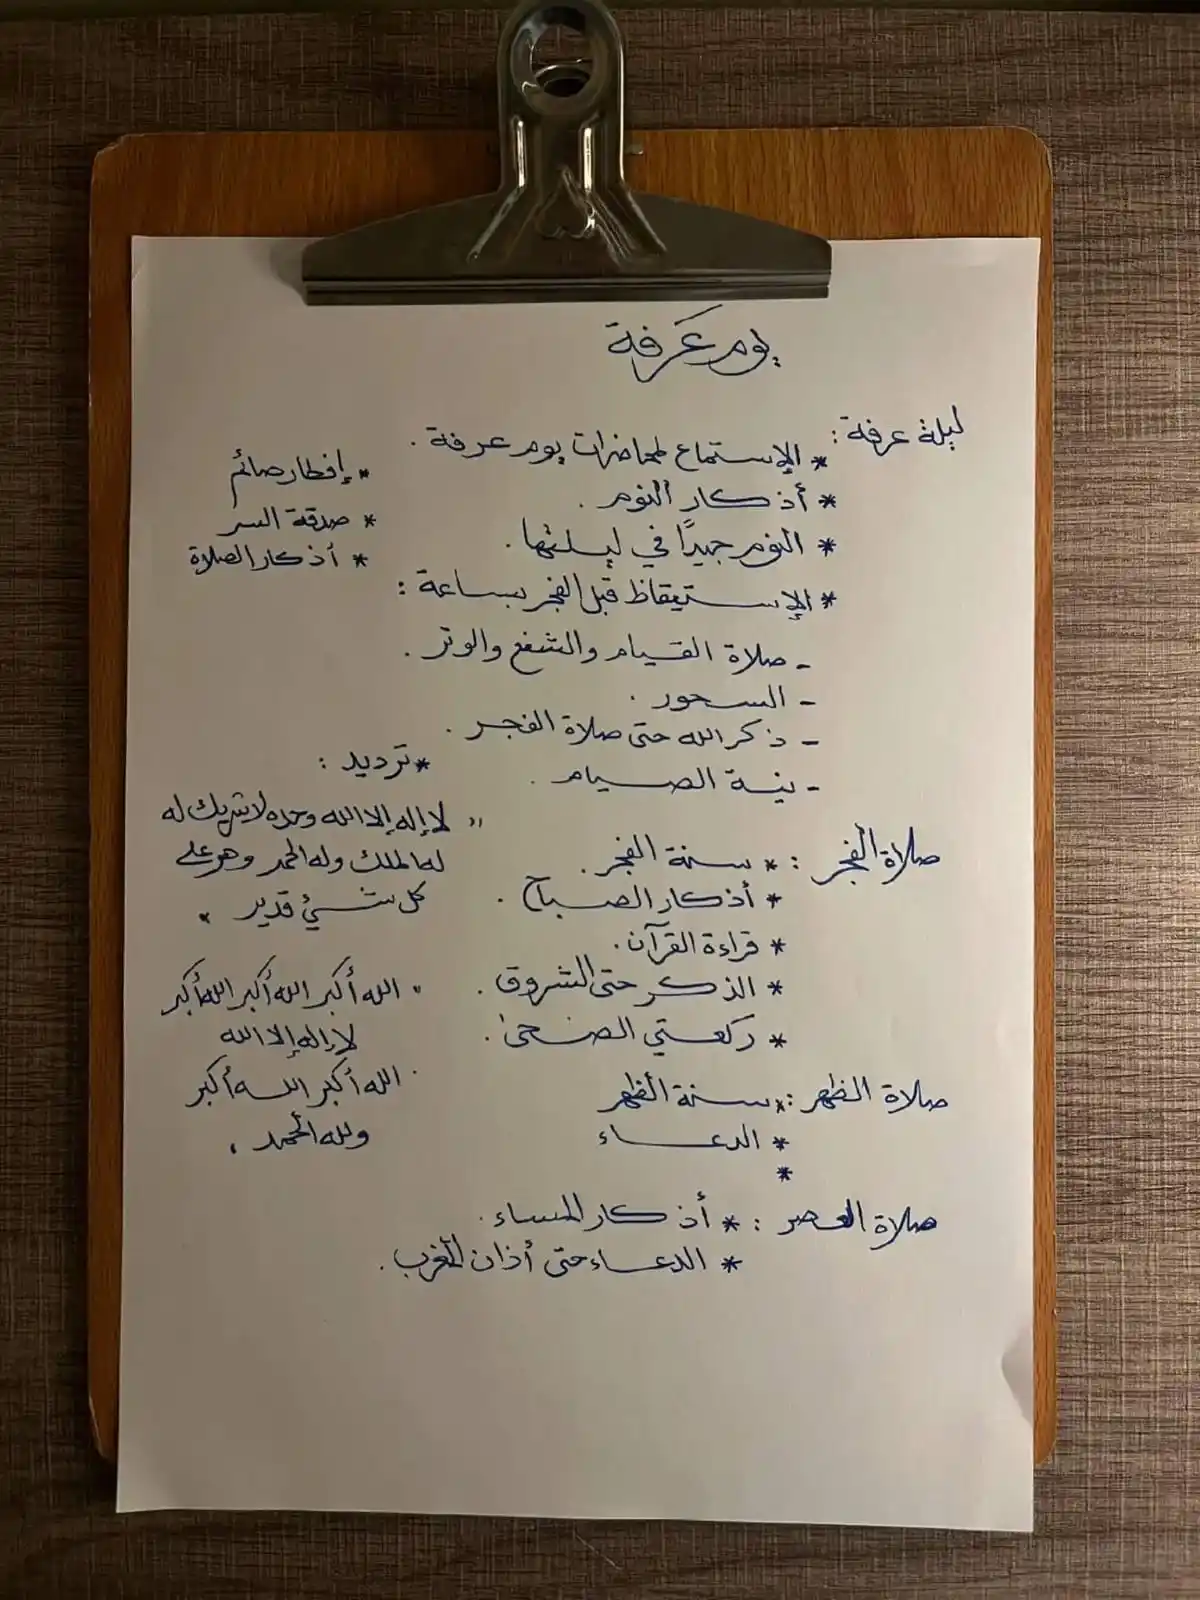 يوم عَرفة
ليلة عرفة :
* الإستماع لمحاضرات يوم عرفة .
* أذكار النوم .
* النوم جيدًا في ليلتها .
* الإستيقاظ قبل الفجر بساعة :
- صلاة القيام والشفع والوتر .
- السحور .
- ذكر الله حتى صلاة الفجر .
- نية الصيام .
صلاة الفجر : * سنة الفجر .
* أذكار الصباح .
* قراءة القرآن .
* الذكر حتى الشروق .
* ركعتي الضحى .
صلاة الظهر : * سنة الظهر
* الدعاء
*
صلاة العصر : * أذكار المساء .
* الدعاء حتى أذان المغرب .
* إفطار صائم
* صدقة السر
* أذكار الصلاة
* ترديد :
" لا إله إلا الله وحده لا شريك له
له الملك وله الحمد وهو على
كل شيء قدير "
" الله أكبر الله أكبر الله أكبر
لا إله إلا الله
الله أكبر الله أكبر
ولله الحمد "